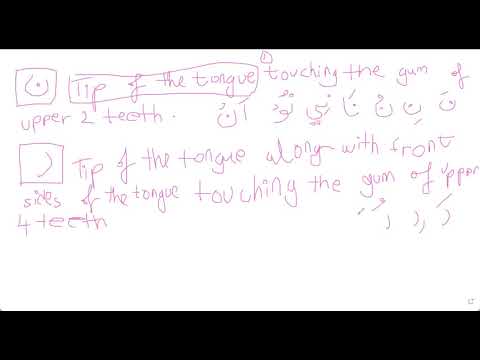 ن Tip of the tongue touching the gum of
upper 2 teeth. نَ نِ نُ نَا نِي نُو اَنْ
ر Tip of the tongue along with front
sides of the tongue touching the gum of upper
4 teeth رَ رِ رُ